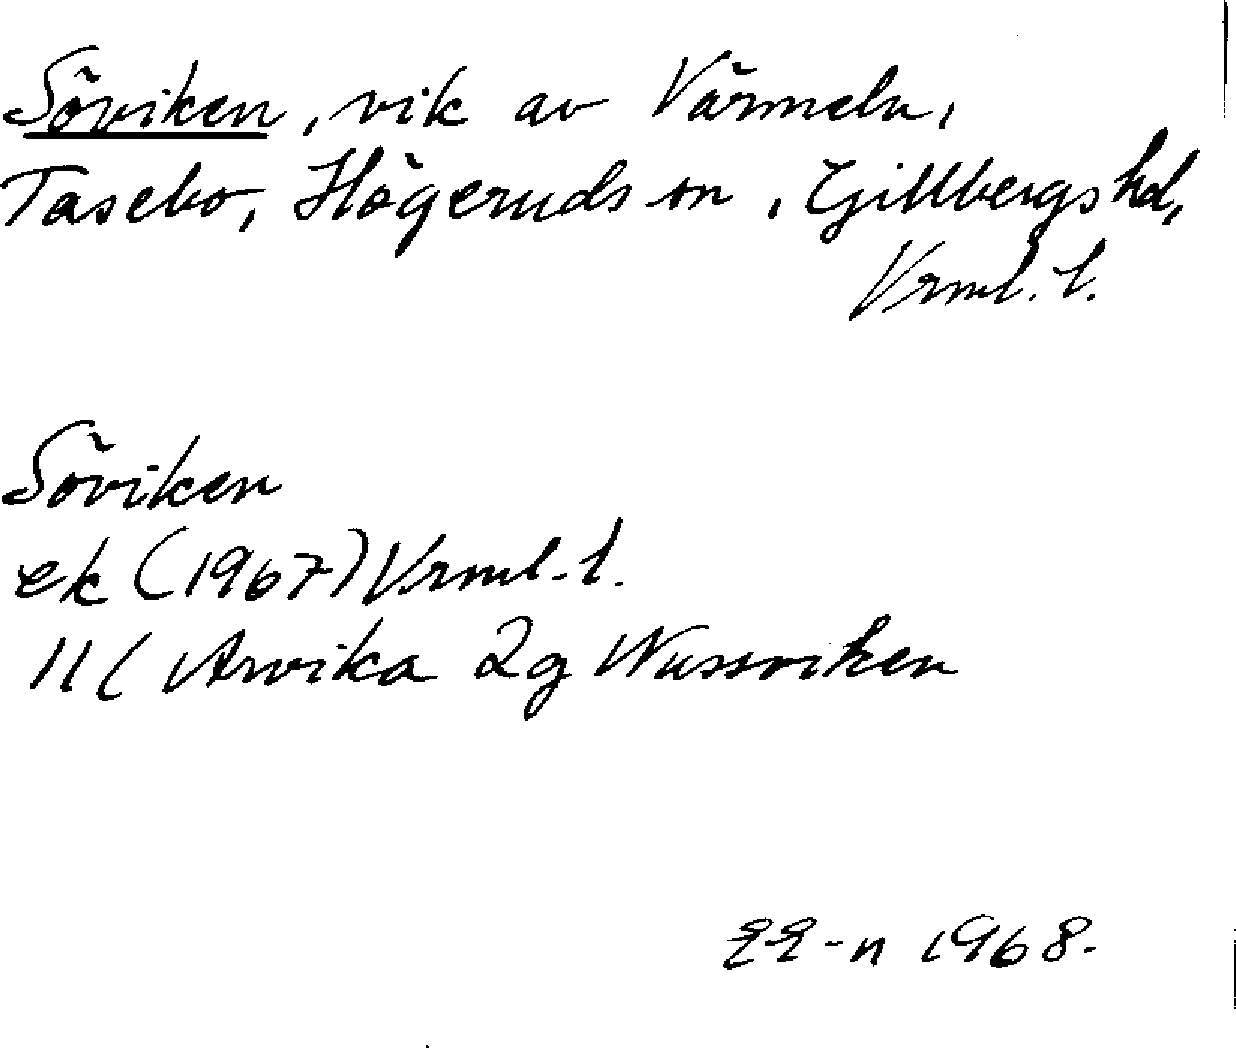 Söviken, vik av Värmeln,
Tasebo, Högeruds sn, Gillbergs hd,
Vrml. l.
Söviken
ek (1967) Vrml. l.
11C Arvika 2g Nussviken
EE-n 1968.